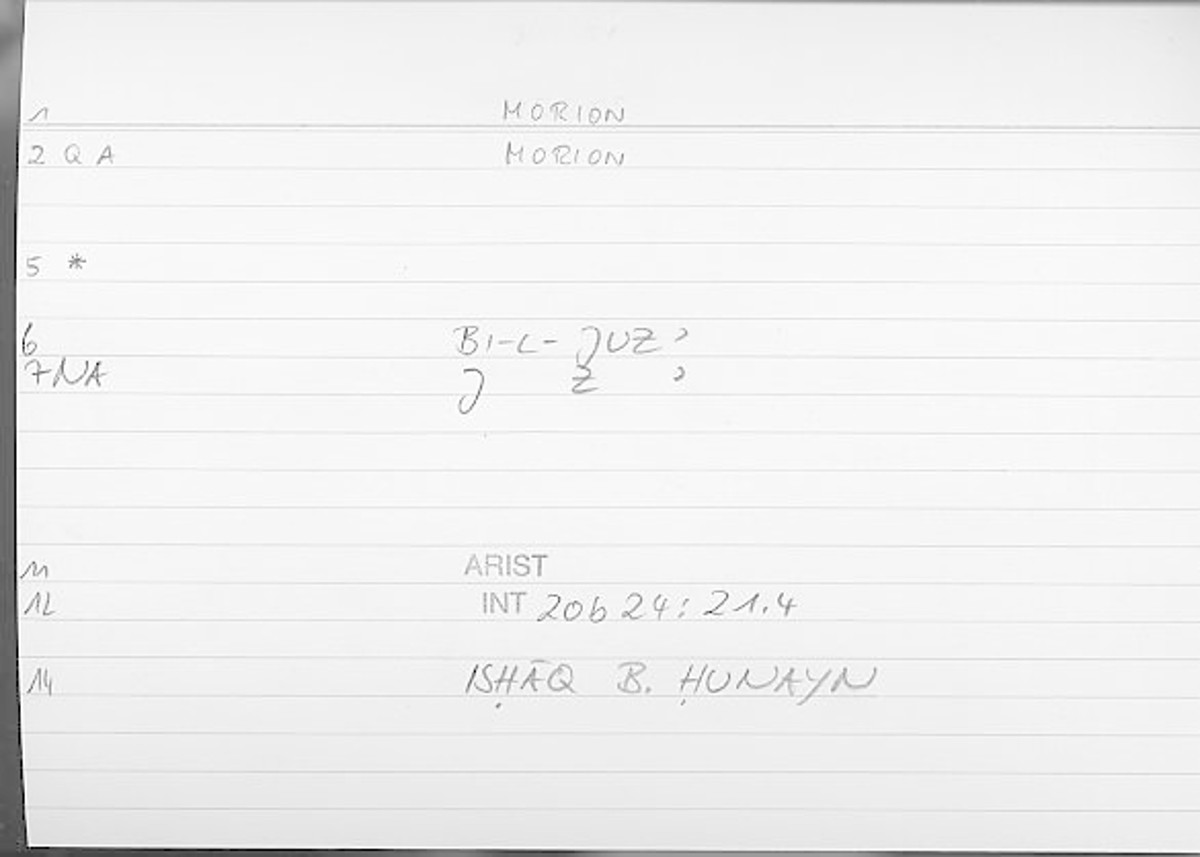 1 MORION
2 Q A MORION
5 *
6 BI-L-JUZʾ
7 NA J Z ʾ
11 ARIST
12 INT 20b 24: 21.4
14 ISḤĀQ B. ḤUNAYN